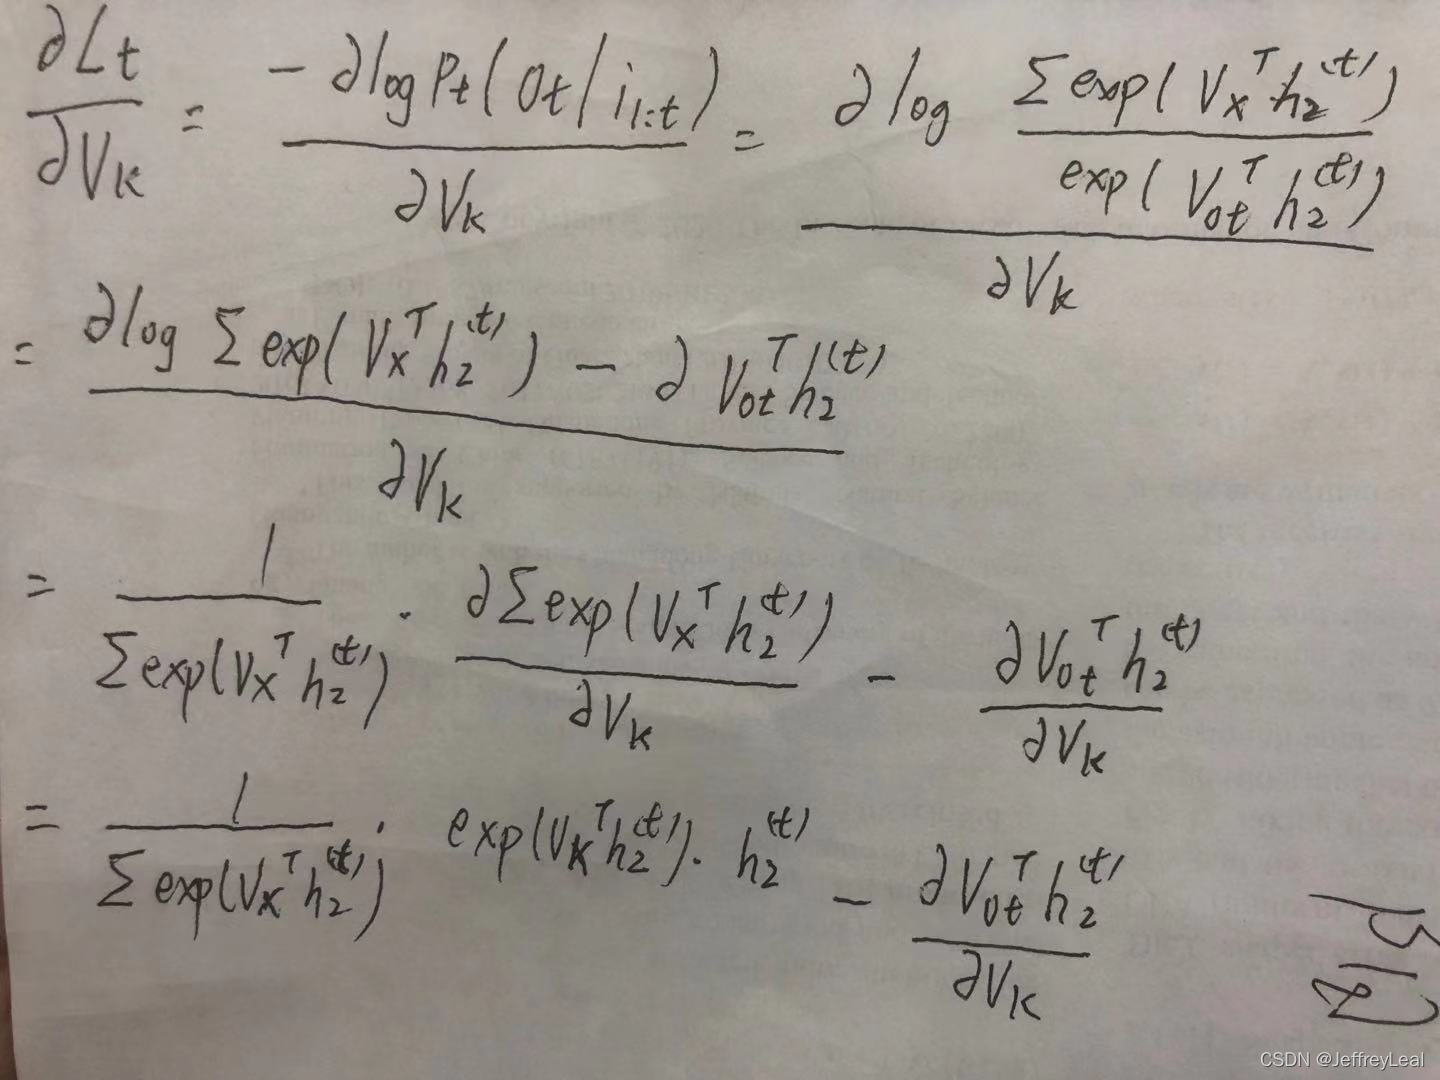 ∂Lt/∂Vk = -∂log Pt(Ot/i1:t)/∂Vk = ∂ log (Σ exp(Vx^T h2^(t))/exp(Vot^T h2^(t)))/∂Vk
= (∂log Σ exp(Vx^T h2^(t)) - ∂ Vot^T h2^(t))/∂Vk
= 1/Σ exp(Vx^T h2^(t)) · ∂Σ exp(Vx^T h2^(t))/∂Vk - ∂Vot^T h2^(t)/∂Vk
= 1/Σ exp(Vx^T h2^(t)) · exp(Vk^T h2^(t)) · h2^(t) - ∂Vot^T h2^(t)/∂Vk
CSDN @JeffreyLeal